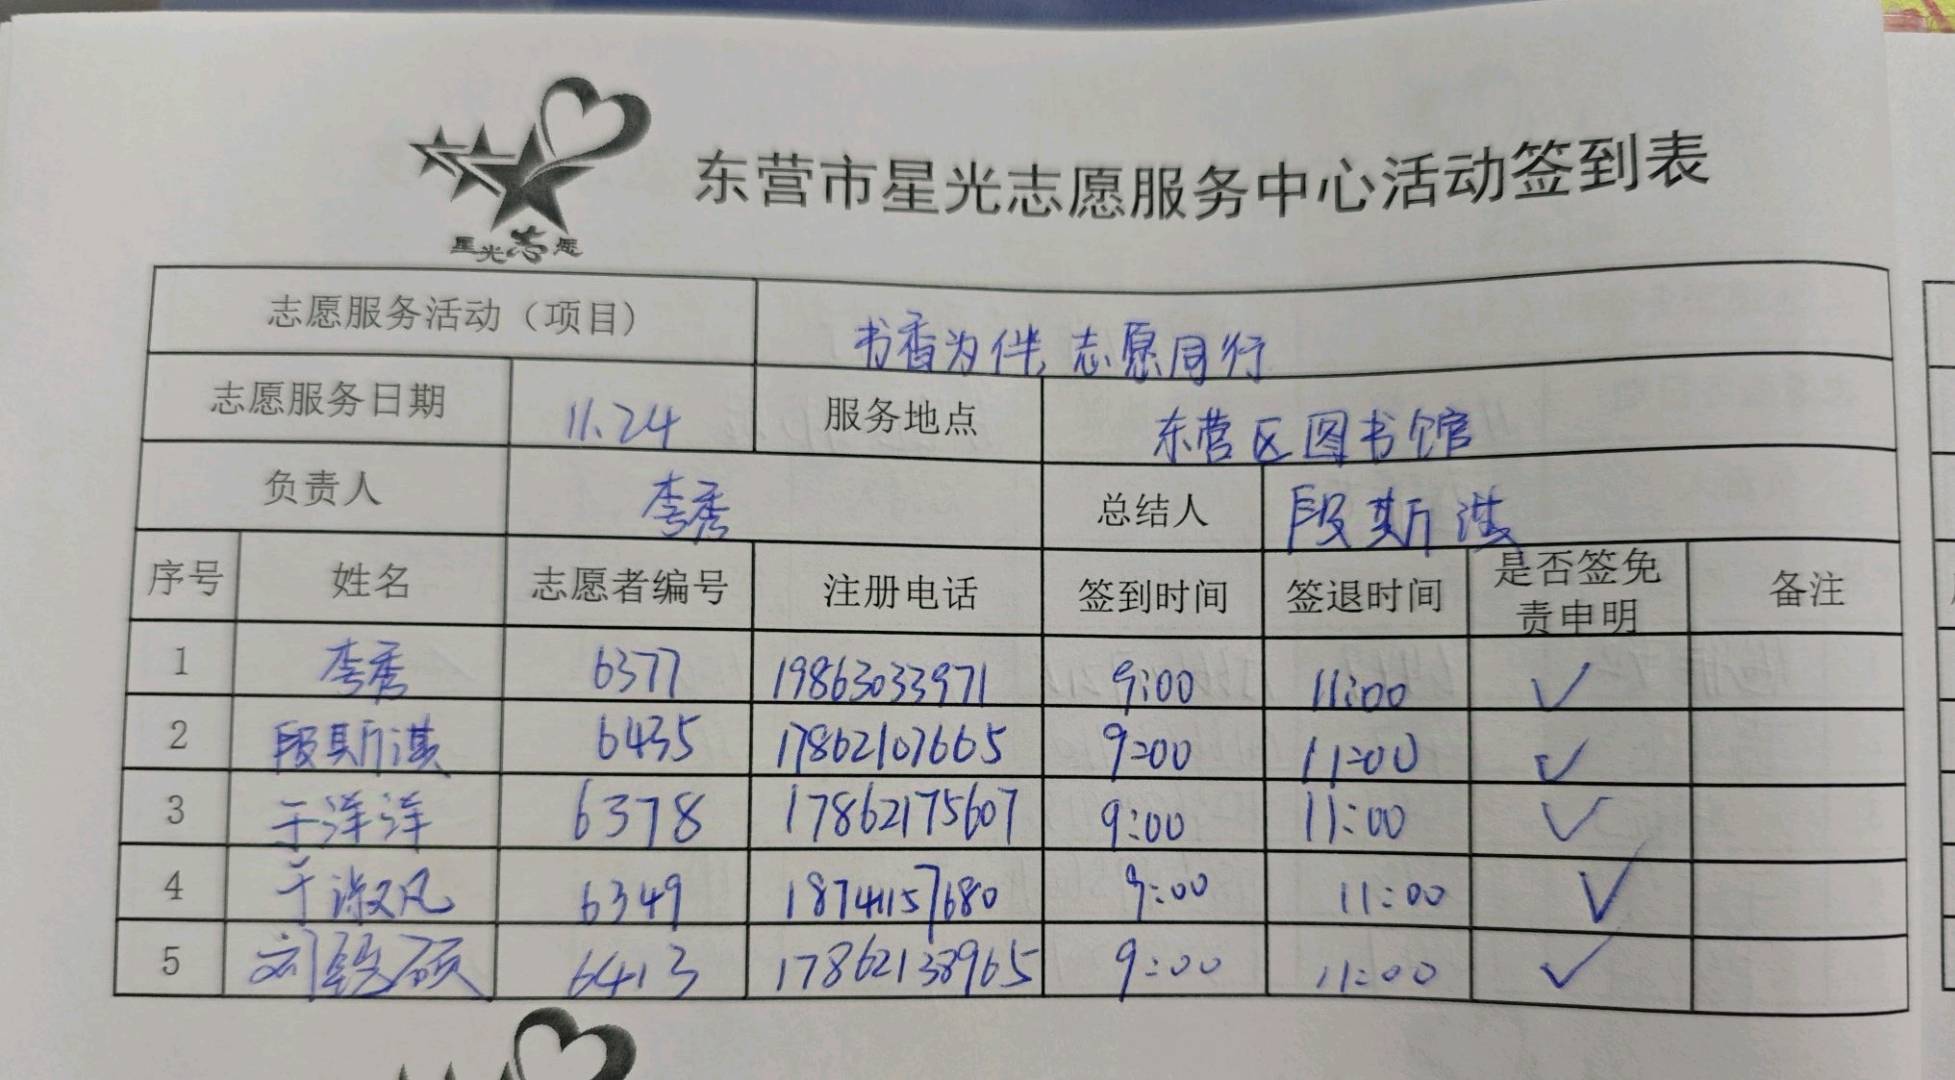 星光志愿
东营市星光志愿服务中心活动签到表
志愿服务活动（项目） 书香为伴,志愿同行
志愿服务日期 11.24 服务地点 东营区图书馆
负责人 李秀 总结人 段斯淇
序号 姓名 志愿者编号 注册电话 签到时间 签退时间 是否签免责申明 备注
1 李秀 6377 19863033971 9:00 11:00 ✓
2 段斯淇 6435 17862107665 9:00 11:00 ✓
3 于洋洋 6378 17862175607 9:00 11:00 ✓
4 于淑凤 6349 18741157680 9:00 11:00 ✓
5 刘 硕 6413 17862138965 9:00 11:00 ✓